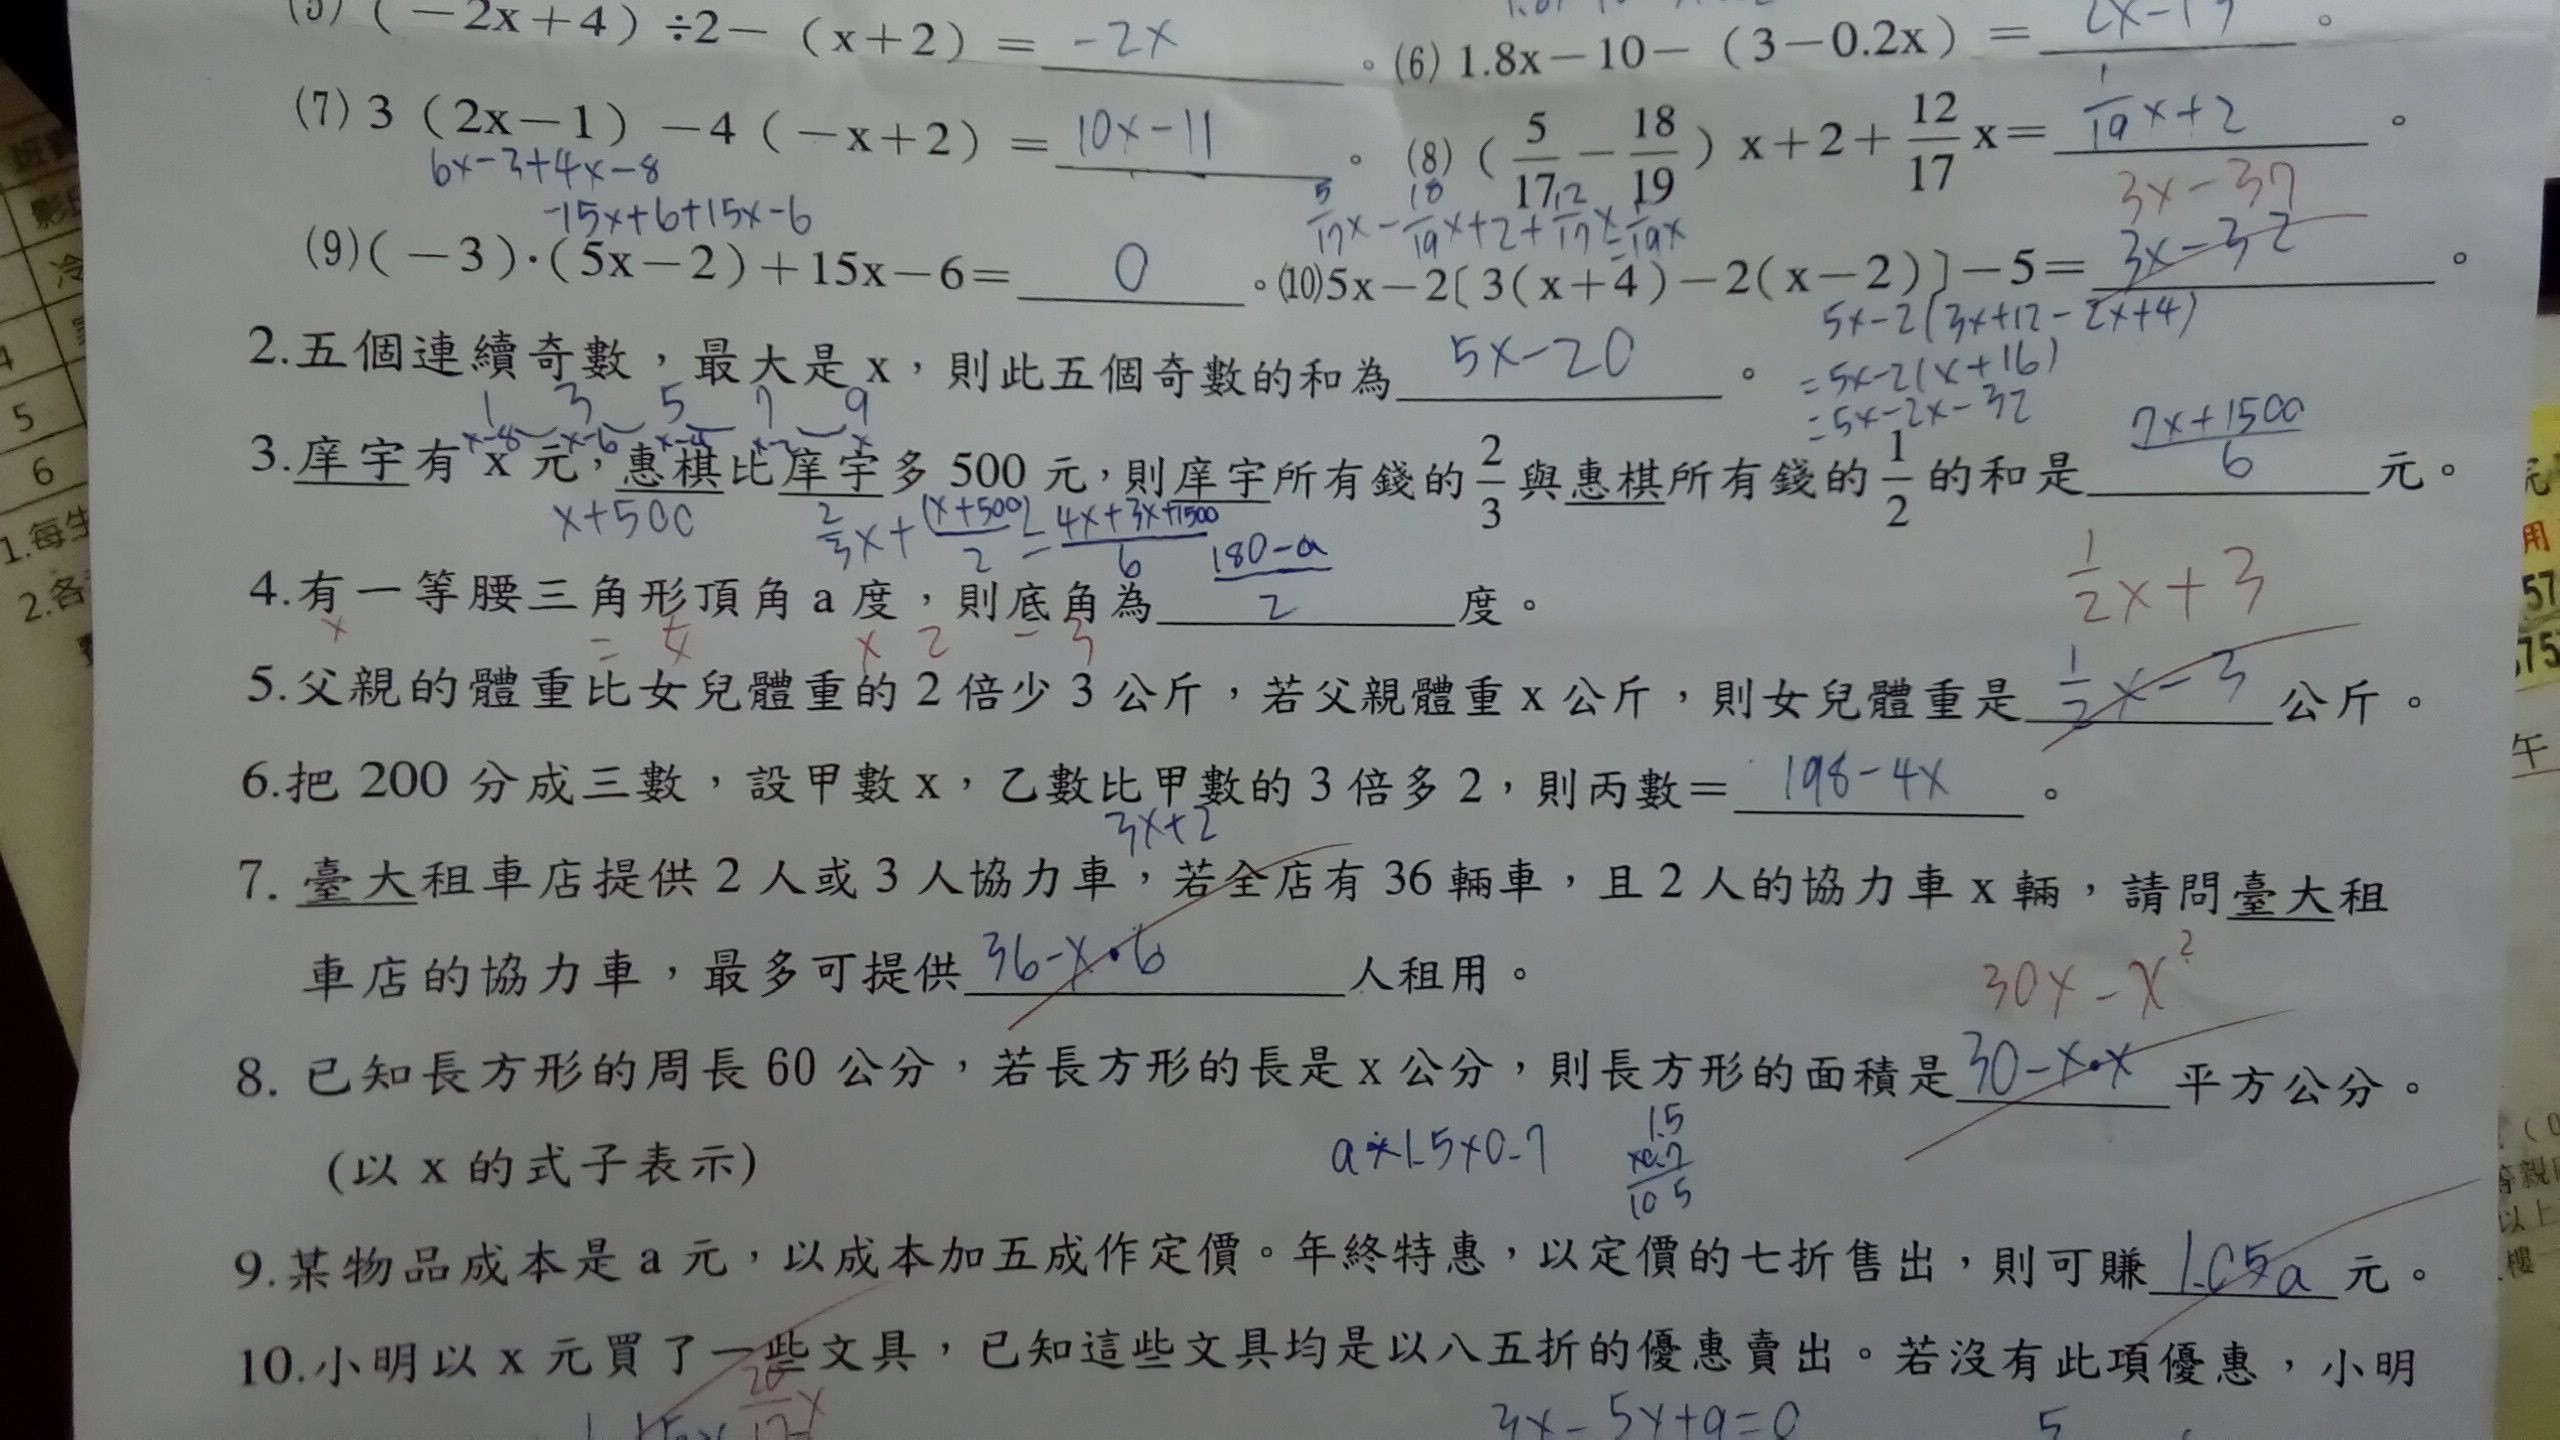 (5) (－2x＋4) ÷2－ (x＋2) ＝ -2x 。(6) 1.8x－10－ (3－0.2x) ＝ 2x-13 。
(7) 3 (2x－1) －4 (－x＋2) ＝ 10x-11 。 (8) (5/17－18/19) x＋2＋12/17 x＝ 1/19 x+2 。
6x-3+4x-8
3x-37
-15x+6+15x-6
5/17x-18/19x+2+12/17x=1/19x
(9)(－3)·(5x－2)＋15x－6＝ 0 。(10)5x－2〔3(x＋4)－2(x－2)〕－5＝ 3x-32 。
5x-2(3x+12-2x+4)
=5x-2(x+16)
=5x-2x-32
2.五個連續奇數，最大是 x，則此五個奇數的和為 5x-20 。
1 3 5 7 9
x-8 x-6 x-4 x-2 x
3.庠宇有 x 元，惠棋比庠宇多 500 元，則庠宇所有錢的 2/3 與惠棋所有錢的 1/2 的和是 7x+1500/6 元。
x+500
2/3x+(x+500)/2=4x+3x+1500/6
4.有一等腰三角形頂角 a 度，則底角為 180-a/2 度。
1/2x+3
x = x 2 - 3
5.父親的體重比女兒體重的 2 倍少 3 公斤，若父親體重 x 公斤，則女兒體重是 1/2x-3 公斤。
6.把 200 分成三數，設甲數 x，乙數比甲數的 3 倍多 2，則丙數＝ 198-4x 。
3x+2
7. 臺大租車店提供 2 人或 3 人協力車，若全店有 36 輛車，且 2 人的協力車 x 輛，請問臺大租
車店的協力車，最多可提供 36-x·6 人租用。
30x-x²
8. 已知長方形的周長 60 公分，若長方形的長是 x 公分，則長方形的面積是 30-x·x 平方公分。
(以 x 的式子表示)
a×1.5×0.7
1.5
×0.7
105
9.某物品成本是 a 元，以成本加五成作定價。年終特惠，以定價的七折售出，則可賺 1.05a 元。
10.小明以 x 元買了一些文具，已知這些文具均是以八五折的優惠賣出。若沒有此項優惠，小明
20/17x
3x-5y+9=0